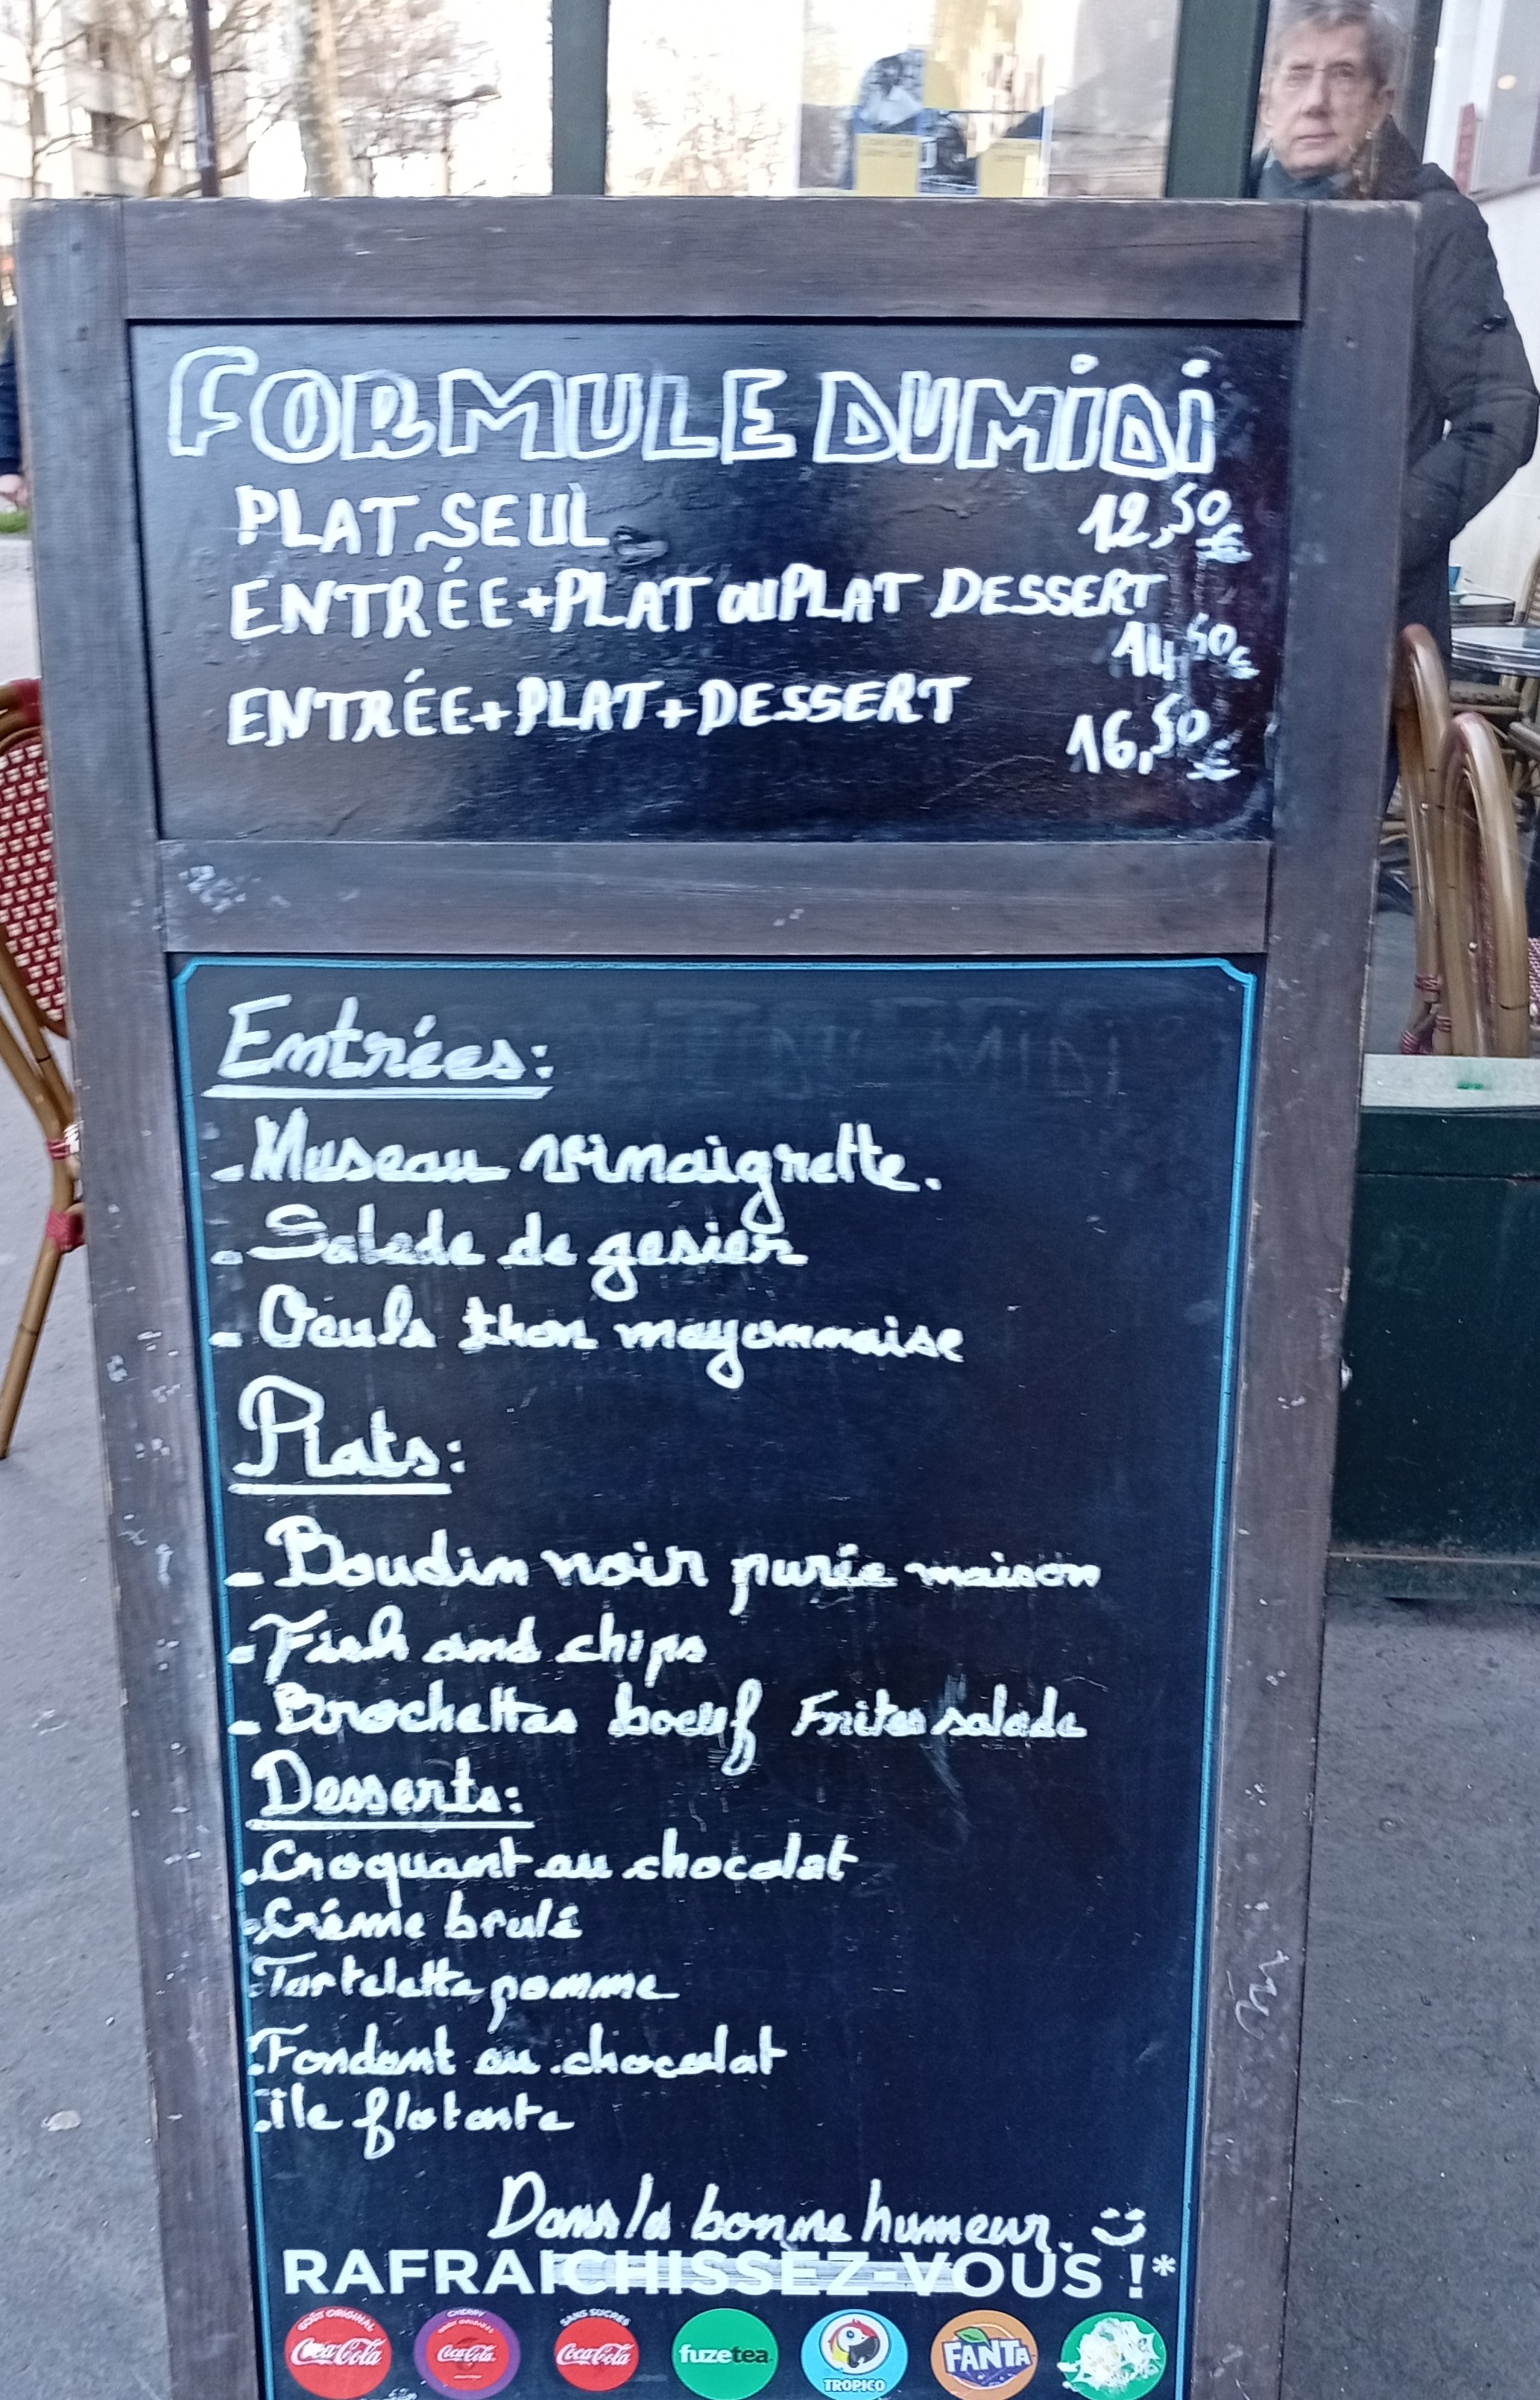 FORMULE DU MiDi
PLAT SEUL 12,50€
ENTRÉE+PLAT OU PLAT DESSERT
14,50€
ENTRÉE+PLAT+DESSERT
16,50€
Entrées:
- Museau vinaigrette.
- Salade de gesier
- Oeufs thon mayonnaise
Plats:
- Boudin noir purée maison
- Fish and chips
- Brochettes boeuf Frites salade
Desserts:
. Croquant au chocolat
. Créme brulé
. Tartelette pomme
. Fondant au chocolat
. île flotante
Dans la bonne humeur. :)
RAFRAICHISSEZ-VOUS !*
GOÛT ORIGINAL
Coca-Cola
CHERRY
Coca-Cola
SANS SUCRES
Coca-Cola
fuzetea
TROPICO
FANTA